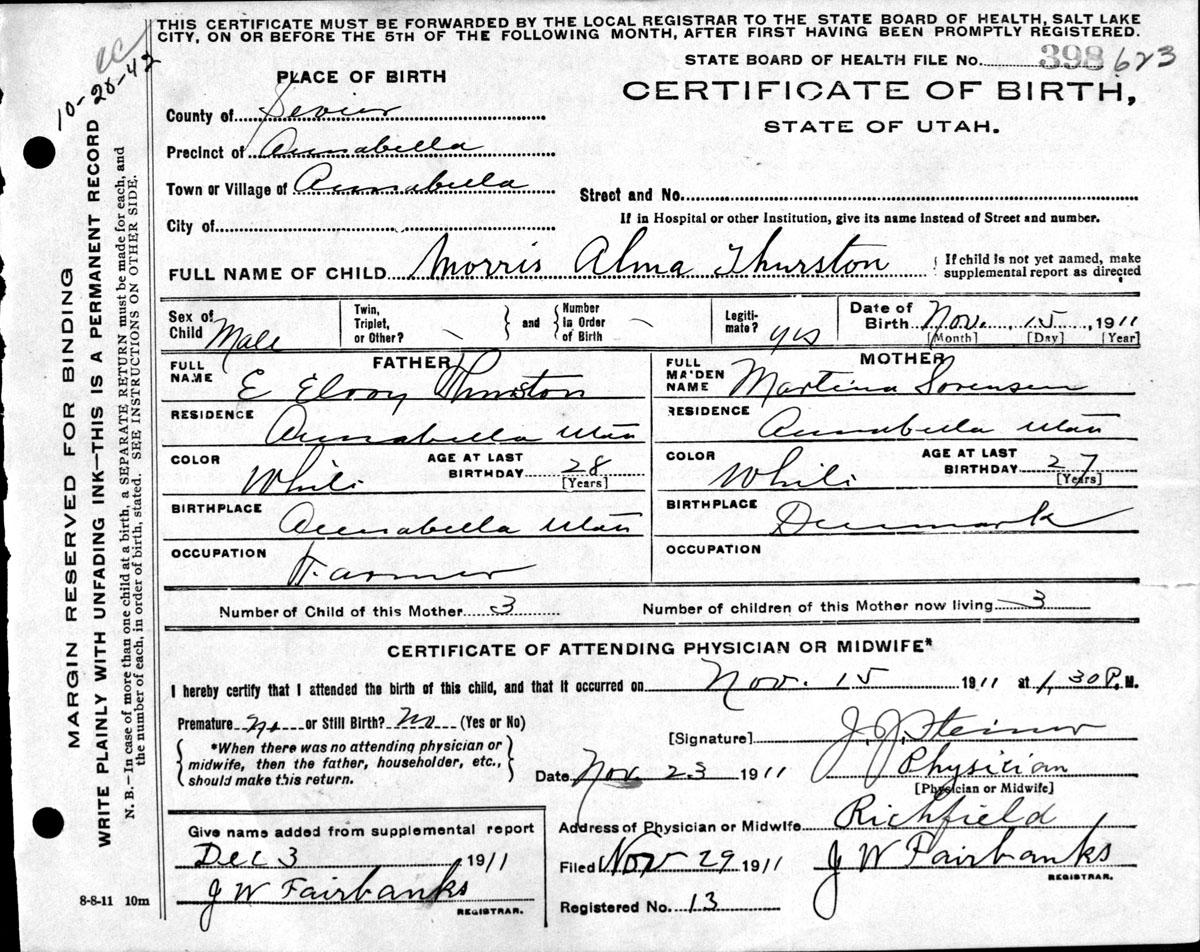 THIS CERTIFICATE MUST BE FORWARDED BY THE LOCAL REGISTRAR TO THE STATE BOARD OF HEALTH, SALT LAKE
CITY, ON OR BEFORE THE 5TH OF THE FOLLOWING MONTH, AFTER FIRST HAVING BEEN PROMPTLY REGISTERED.
10-28-42
STATE BOARD OF HEALTH FILE No. 398 623
PLACE OF BIRTH
CERTIFICATE OF BIRTH,
STATE OF UTAH.
County of Sevier
Precinct of Annabella
Town or Village of Annabella
Street and No.
City of
If in Hospital or other Institution, give its name instead of Street and number.
FULL NAME OF CHILD Morris Alma Thurston
If child is not yet named, make
supplemental report as directed
Sex of Child Male
Twin, Triplet, or Other? —
and
Number in Order of Birth —
Legitimate? yes
Date of Birth Nov. 15, 1911
[Month] [Day] [Year]
FATHER
FULL NAME E Elroy Thurston
RESIDENCE Annabella Utah
COLOR White
AGE AT LAST BIRTHDAY 28
[Years]
BIRTHPLACE Annabella Utah
OCCUPATION Farmer
MOTHER
FULL MAIDEN NAME Martina Sorensen
RESIDENCE Annabella Utah
COLOR White
AGE AT LAST BIRTHDAY 27
[Years]
BIRTHPLACE Denmark
OCCUPATION
Number of Child of this Mother 3
Number of children of this Mother now living 3
CERTIFICATE OF ATTENDING PHYSICIAN OR MIDWIFE*
I hereby certify that I attended the birth of this child, and that it occurred on Nov. 15 1911 at 1,30 P. M.
Premature No or Still Birth? No (Yes or No)
*When there was no attending physician or
midwife, then the father, householder, etc.,
should make this return.
[Signature] J. J. Steiner
Date Nov 23 1911
Physician
[Physician or Midwife]
Address of Physician or Midwife Richfield
Give name added from supplemental report
Dec 3 1911
J W Fairbanks
REGISTRAR.
Filed Nov 29 1911
J W Fairbanks
REGISTRAR.
Registered No. 13
8-8-11 10m
MARGIN RESERVED FOR BINDING
WRITE PLAINLY WITH UNFADING INK—THIS IS A PERMANENT RECORD
N. B.—In case of more than one child at a birth, a SEPARATE RETURN must be made for each, and
the number of each, in order of birth, stated. SEE INSTRUCTIONS ON OTHER SIDE.